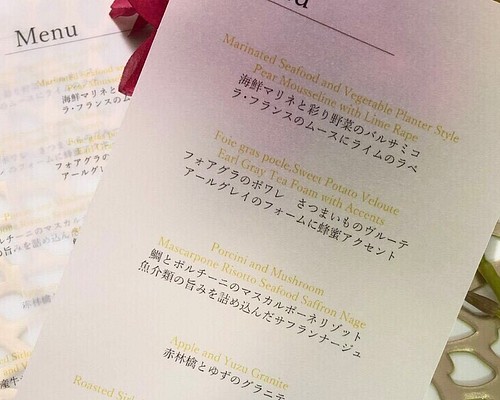 Menu
Marinated Seafood and Vegetable Planter Style
Pear Mousseline with Lime Rape
海鮮マリネと彩り野菜のバルサミコ
ラ・フランスのムースにライムのラペ
Foie gras poele,Sweet Potato Veloute
Earl Gray Tea Foam with Accents
フォアグラのポワレ さつまいものヴルーテ
アールグレイのフォームに蜂蜜アクセント
Porcini and Mushtroom
Mascarpone Risotto Seafood Saffron Nage
鯛とポルチーニのマスカルポーネリゾット
魚介類の旨みを詰め込んだサフランナージュ
Apple and Yuzu Granite
赤林檎とゆずのグラニテ
Roasted